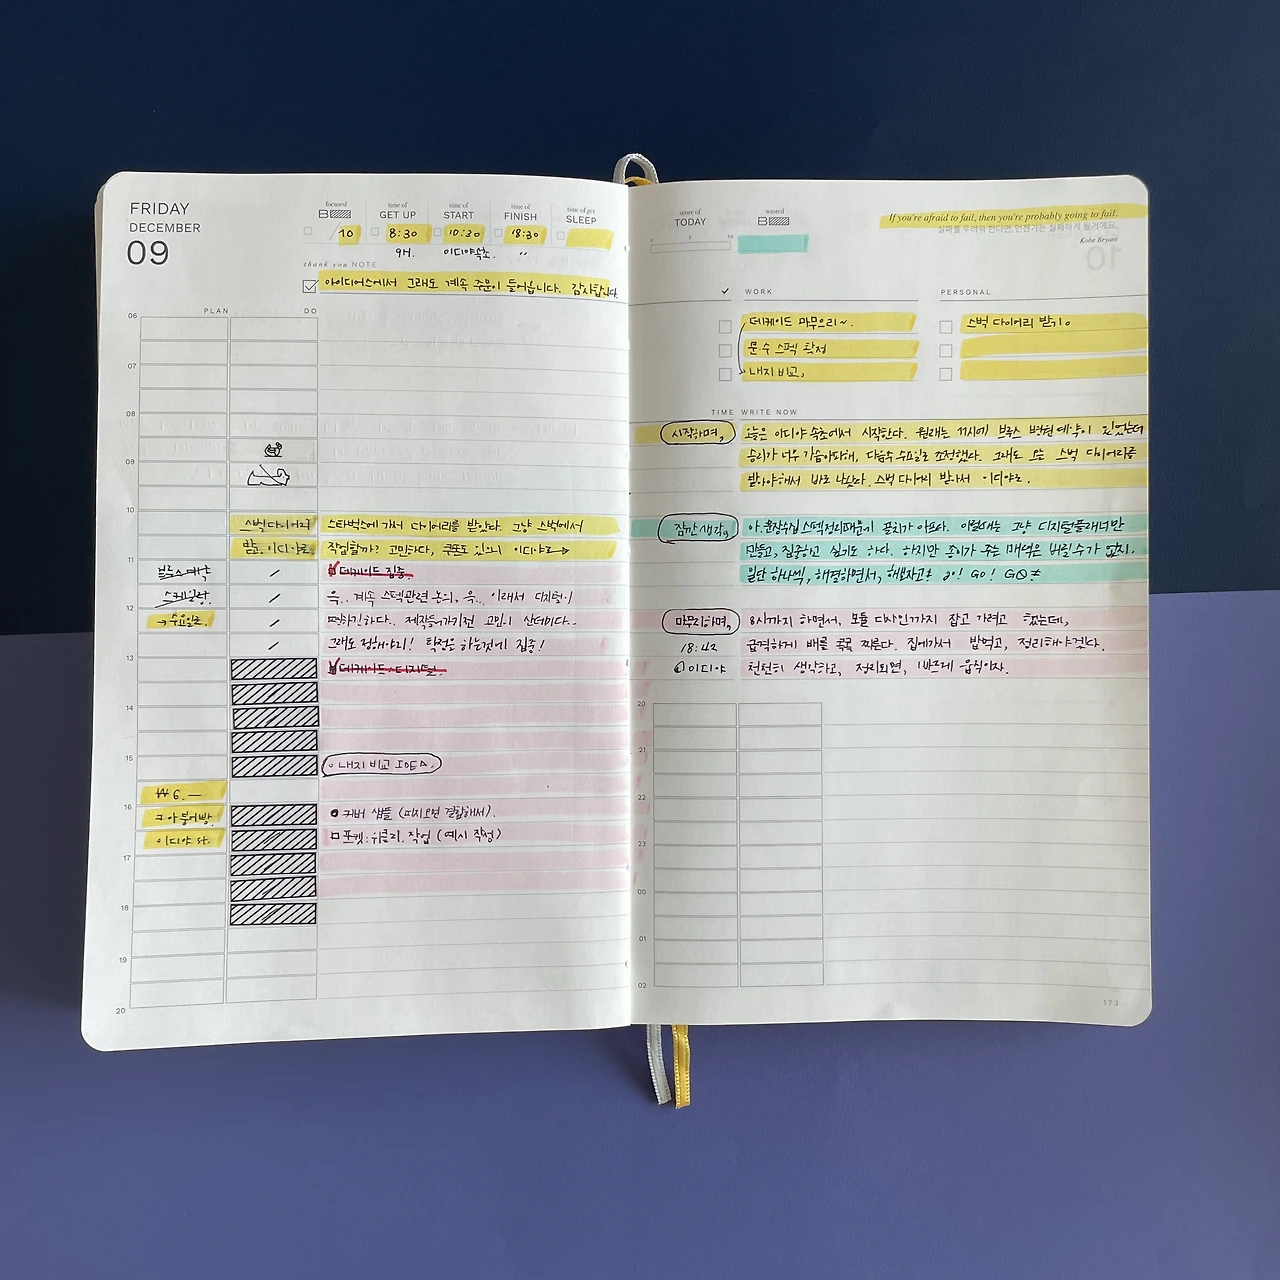 FRIDAY
DECEMBER
09
focused
10
time of
GET UP
8:30
9H.
time of
START
10:30
이디야속초.
time of
FINISH
18:30
time of get
SLEEP
thank you NOTE
아이디어스에서 그래도 계속 주문이 들어옵니다. 감사합니다.
PLAN DO
06
07
08
09
10
스벅다이어리 스타벅스에 가서 다이어리를 받았다. 그냥 스벅에서
받고, 이디야로, 작업할까? 고민하다, 쿠폰도 있으니 이디야로→
11
브루스예약 데케이드 집중.
스케일링. 윽.. 계속 스펙관련 논의, 윽.. 이래서 디지털이
12
→수요일로. 제작들어가기전 고민이 산더미다..
그래도 정해야지! 탁건은 하는것에 집중!
13
데케이드 디지털.
14
15
내지 비교 IDEA.
₩ 6.—
16
커버 샘플 (피지오면 결합해서).
붕어빵.
포켓: 위클리. 작업 (예시 작성)
이디야
17
18
19
20
score of
TODAY
wasted
If you're afraid to fail, then you're probably going to fail.
실패를 두려워 한다면 언젠가는 실패하게 될거예요.
Kobe Bryant
WORK PERSONAL
데케이드 마무으리~. 스벅 다이어리 받기。
문수 스펙 확정
내지 비교,
TIME WRITE NOW
시작하며, 오늘은 이디야 속초에서 시작한다. 원래는 11시에 브루스 병원 예약이 있었는데
승리가 너무 가슴아파해, 다음주 수요일로 조정했다. 그래도 스벅 다이어리를
받아야해서 바로 나섰다. 스벅 다이어리 받아서 이디야로.
잠깐생각, 아. 문장수집 스펙정리때문에 골치가 아프다. 이럴때는 그냥 디지털플래너만
만들고, 집중하고 싶기도 하다. 하지만 종이가 주는 매력은 버릴수가 없지.
일단 하나씩, 해결하면서, 해보자고! go! GO! GO
마무리하며, 8시까지 하면서, 모듈 디자인까지 잡고 가려고 했는데,
18:42 급격하게 배를 콕콕 찌른다. 집에가서 밥먹고, 정리해야겠다.
이디야 천천히 생각하고, 정리되면, 빠르게 움직이자.
20
21
22
23
00
01
02
173